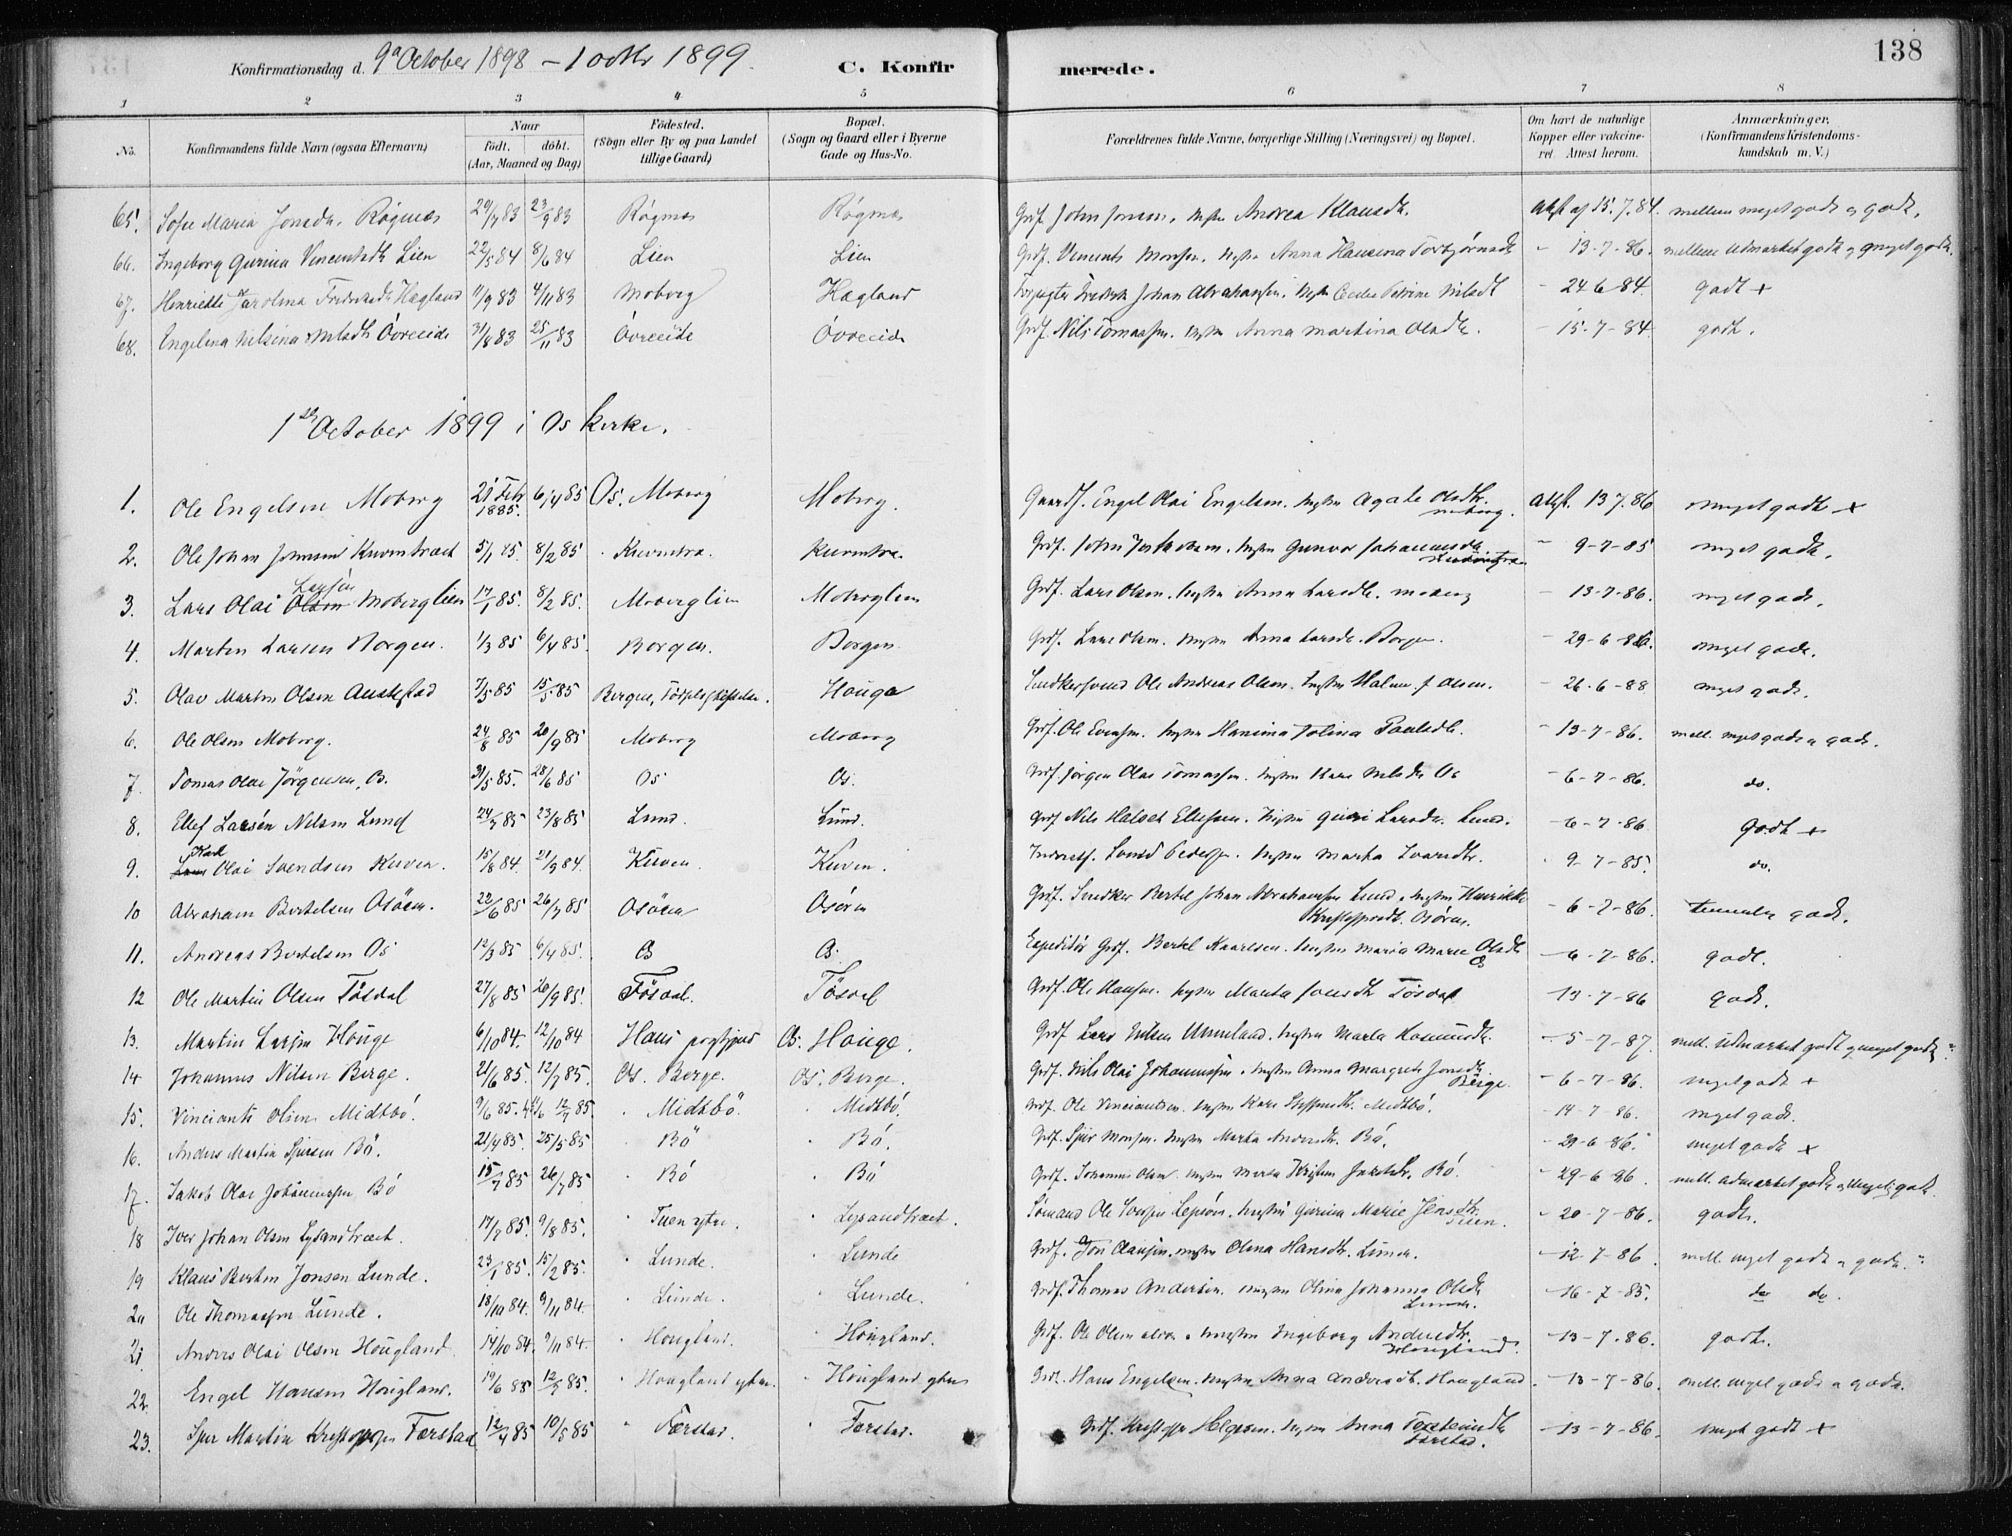 Konfirmationsdag d. 9de October 1898 – 1 octbr 1899. C. Konfirmerede. 138
1 2 3 4 5 6 7 8
No. Konfirmandens fulde Navn (ogsaa Efternavn) Naar født. døbt. (Aar, Maaned og Dag) Fødested. (Sogn eller By og paa Landet tillige Gaard) Bopæl. (Sogn og Gaard eller i Byerne Gade og Hus-No. Forældrenes fulde Navne, borgerlige Stilling (Næringsvei) og Bopæl. Om havt de naturlige Kopper eller vakcineret. Attest herom. Anmærkninger. (Konfirmandens Kristendomskundskab m. V.)
65. Sofie Maria Jonsdtr. Røgnæs 29/7 83 23/9 83 Røgnæs Røgnæs Grdf. John Jonsen, Andrea Klausdtr. Attest af 15.7.84. mellem meget godt og godt.
66. Ingeborg Gurina Vincentsdtr Lien 22/5 84 8/6 84 Lien Lien Grdf. Vincents Monsen. Anna Hansina Torbjørnsdtr – 13-7-86. mellem udmærket godt og meget godt.
67. Henriette Karolina Fredriksdtr Hægland 11/9 83 4/11 83 Moberg Hægland Fredrik Johan Abrahamsen. Petrine Nilsdtr – 24 6-84. godt +
68. Engelina Nilsina Nilsdtr Øvreeide 31/8 83 25/11 83 Øvreeide Øvreeide Grdf. Nils Tomassen. Anna Martina Olsdtr. – 15-7-84. godt.
1ste October 1899 i Os Kirke.
1. Ole Engelsen Moberg 21 Feb 1885. 6/4 85 Os. Moberg Moberg. Gaardf. Engel Olai Engelsen. Agate Olsdtr. Moberg. Attest. 13 7.86 meget godt +
2. Ole Johan Johnsen Kuventræet 5/1 85. 8/2 85 Kuventræ. Kuventræ. Grdf. John Gunvor Johannesdtr – 9-7-85 meget godt.
3. Lars Olai Larsen Moberglien 17/1 85. 8/2 85. Moberglien Moberglien Grdf. Lars Olsen. Anna Larsdtr. Moberg – 13-7-86. meget godt.
4. Martin Larsen Borgen. 1/3 85 6/4 85. Borgen. Borgen Grdf. Lars Olsen. Anna Larsdtr. Borgen. – 29-6-86. meget godt.
5. Olav Martin Olsen Austestad 7/3 85 15/5 85 Bergen, Houge Ole Andreas Olsen. – 26-6-88 meget godt.
6. Ole Olsen Moberg. 24/8 85 20/9 85 Moberg Moberg Grdf. Ole Evensen. Hansina Jolina Paulsdtr. – 13-7-86. mell. meget godt og godt.
7. Tomas Olai Jørgensen, Os. 31/5 85. 28/6 85 Os Os. Grdf Jørgen Olai Tomassen. Nilsdtr Os – 6-7-86. do.
8. Ellef Larsen Nilsen Lund 24/7 85 23/8 85 Lund. Lund. Grdf Nils Halvet Ellefsen. Guri Larsdtr. Lund. – 6-7-86 Godt +
9. Karl Olai Svendsen Kuven. 15/8 84. 21/9 84. Kuven. Kuven. Svend Pedersen. Marta Ivarsdtr. 9-7-85. do.
10 Abraham Bertelsen Osøren. 22/6 85 26/7 85 Osøren Osøren Grdf. Snedker Bertel Johan Abrahamsen Lund, Henrikke Kristoffersdtr. Osøren. – 6-7-86. temmelig godt.
11. Andreas Bertelsen Os 12/3 85 6/4 85. Os Os. Expeditør Grdf. Bertel Knarlsen. Maria Marie Olsdtr Os – 6-7-86. godt.
12 Ole Martin Olsen Tøsdal 27/8 85 20/9 85. Tøsdal. Tøsdal Grdf. Ole Hansen. Marta Jonsdtr Tøsdal – 13-7-86 godt.
13. Martin Larsen Houge 6/10 84. 12/10 84 Haus prgstjeld Os. Houge. Grdf Lars Nilsen Unneland. Marta Rasmusdtr. – 5-7-87. mell. udmærket godt og meget godt.
14 Johannes Nilsen Berge. 21/6 85. 12/7 85. Os. Berge. Os. Berge. Grdf. Nils Olai Johannessen. Anna Margrete Jonsdtr. Berge – 6-7-86. meget godt +
15. Vincients Olsen Midtbø. 9/6 85. 12/7 85. Midtbø Midtbø. Grdf. Ole Vincientsen. Midtbø. – 14-7-86. meget godt.
16. Anders Martin Sjursen Bø. 21/4 85. 25/5 85 Bø Bø. Grdf. Sjur Monsen. Marta Andersdtr. Bø. – 29-6-86. meget godt +
17. Jakob Olai Johannessen Bø 15/7 85 26/7 85 Bø Bø Grdf. Johannes Olsen. Marta Kristine Jakobsdtr. Bø. – 29-6-86 mell. udmærket godt og meget godt.
18 Iver Johan Olsen Lysandtræet. 17/7 85. 9/8 85. Tuen ytre. Lysandtræet. Sømand Ole Iversen Lepsøen. Gurina Marie Jensdtr. Tuen. – 20-7-86. godt.
19 Klaus Bertin Jonsen Lunde. 23/1 85. 15/2 85. Lunde. Lunde Grdf. Jon Clausen. Olina Hansdtr. Lunde. – 12-7-86. mell. meget godt og godt.
20 Ole Thomassen Lunde. 18/10 84. 9/11 84. Lunde. Lunde. Grdf. Thomas Andersen. Olina Johanna Olsdtr Lunde. – 16-7-85. do do.
21 Anders Olai Olsen Hougland. 14/10 84. 9/11 84. Hougland. Hougland. Grdf. Ole Olsen Ingeborg Andersdtr. Hougland. – 13-7-86. godt.
22. Engel Hansen Hougland. 19/6 85 12/7 85. Hougland ytre. Hougland ytre Grdf. Hans Engelsen. Anna Andersdtr. Hougland. – 13-7-86. mell. meget godt og godt.
23. Sjur Martin Kristoffersen Færstad 12/4 85 10/5 85 Færstad. Færstad. Grdf. Kristoffer Helgesen. Anna Torsteinsdtr Færstad. – 13-7-86. meget godt +